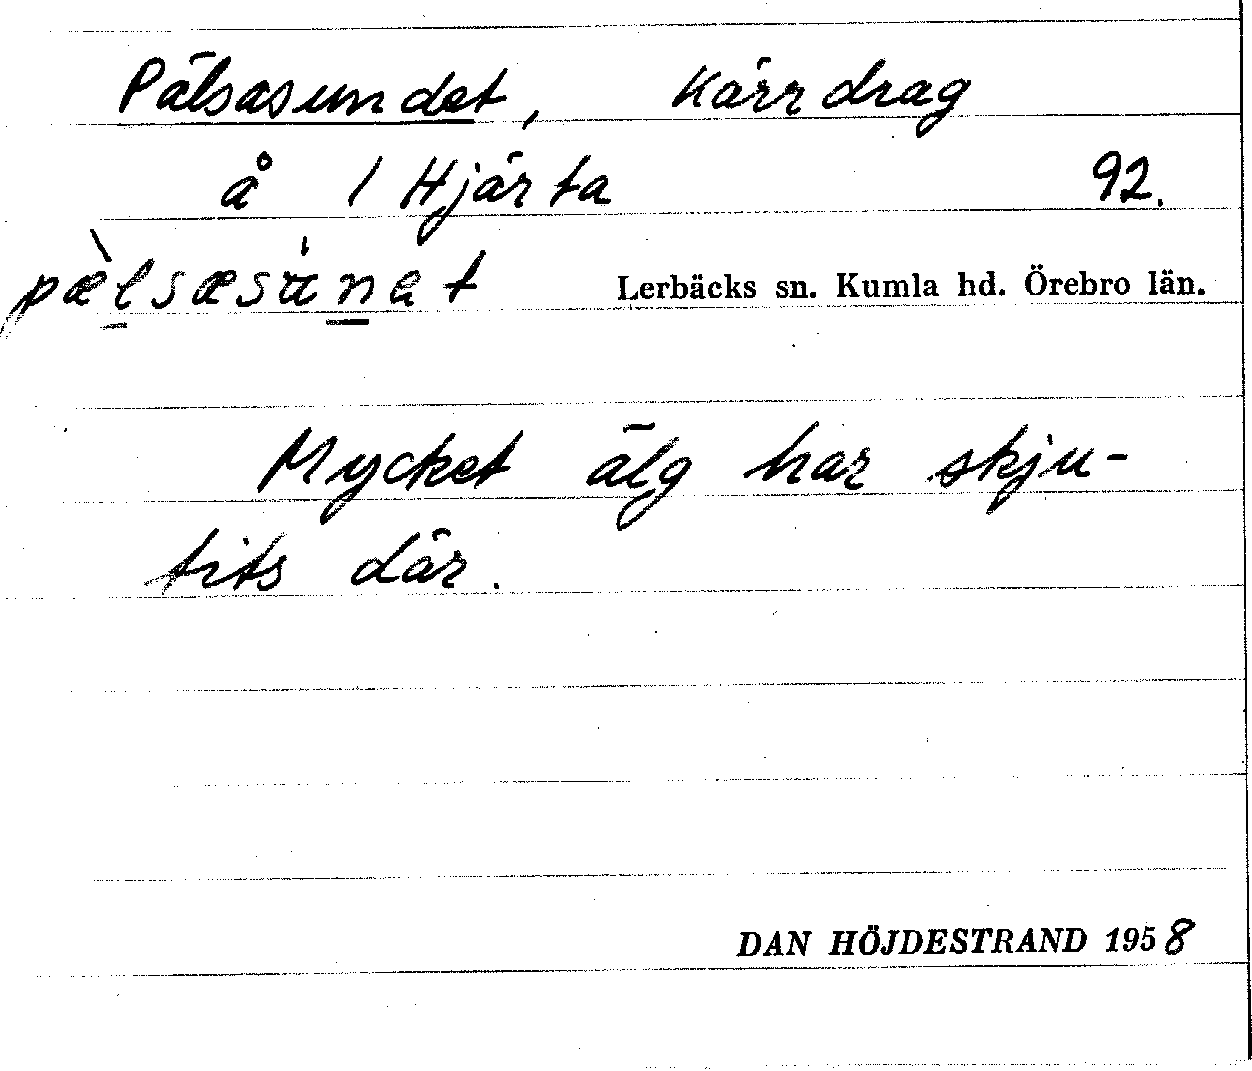 Pälsasundet, Kärrdrag
å 1 Hjärta 92.
Lerbäcks sn. Kumla hd. Örebro län.
Mycket älg har skju-
tits där.
DAN HÖJDESTRAND 1958